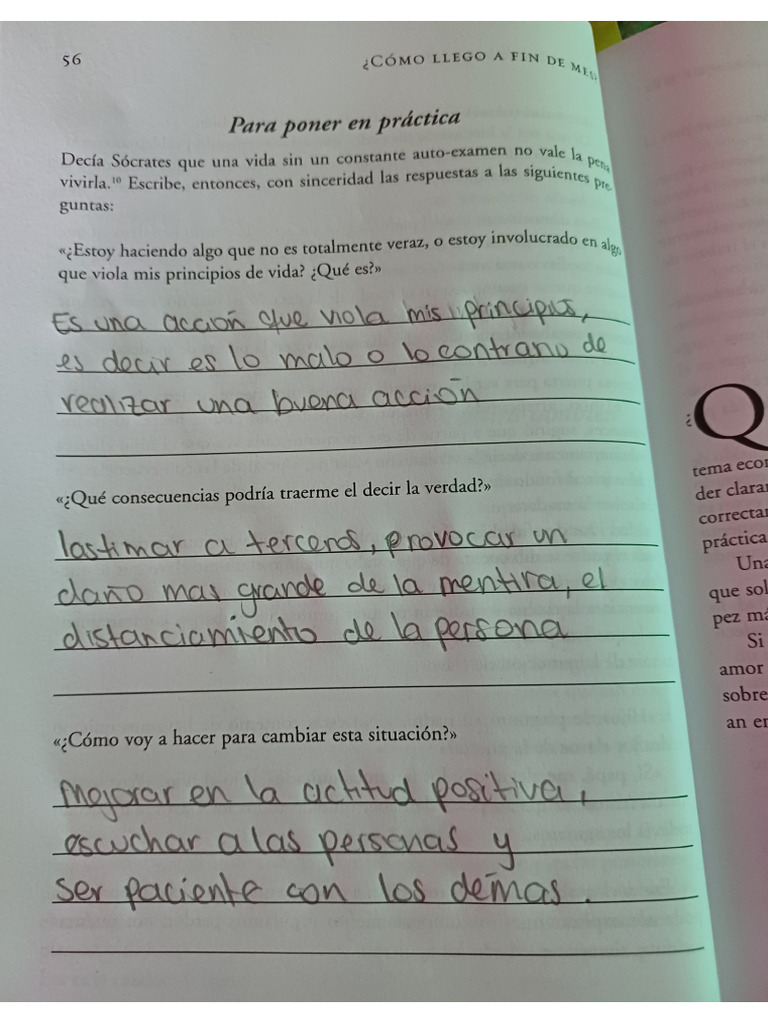 56
¿CÓMO LLEGO A FIN DE MES
Para poner en práctica
Decía Sócrates que una vida sin un constante auto-examen no vale la pena
vivirla.¹⁰ Escribe, entonces, con sinceridad las respuestas a las siguientes pre
guntas:
«¿Estoy haciendo algo que no es totalmente veraz, o estoy involucrado en algo
que viola mis principios de vida? ¿Qué es?»
Es una acción que viola mis principios,
es decir es lo malo o lo contrario de
realizar una buena acción
«¿Qué consecuencias podría traerme el decir la verdad?»
lastimar a terceros, provocar un
daño mas grande de la mentira, el
distanciamiento de la persona
«¿Cómo voy a hacer para cambiar esta situación?»
Mejorar en la actitud positiva,
escuchar a las personas y
ser paciente con los demás.
¿Q
tema
der
práctica
Una
que
pez
Si
amor
sobre
an